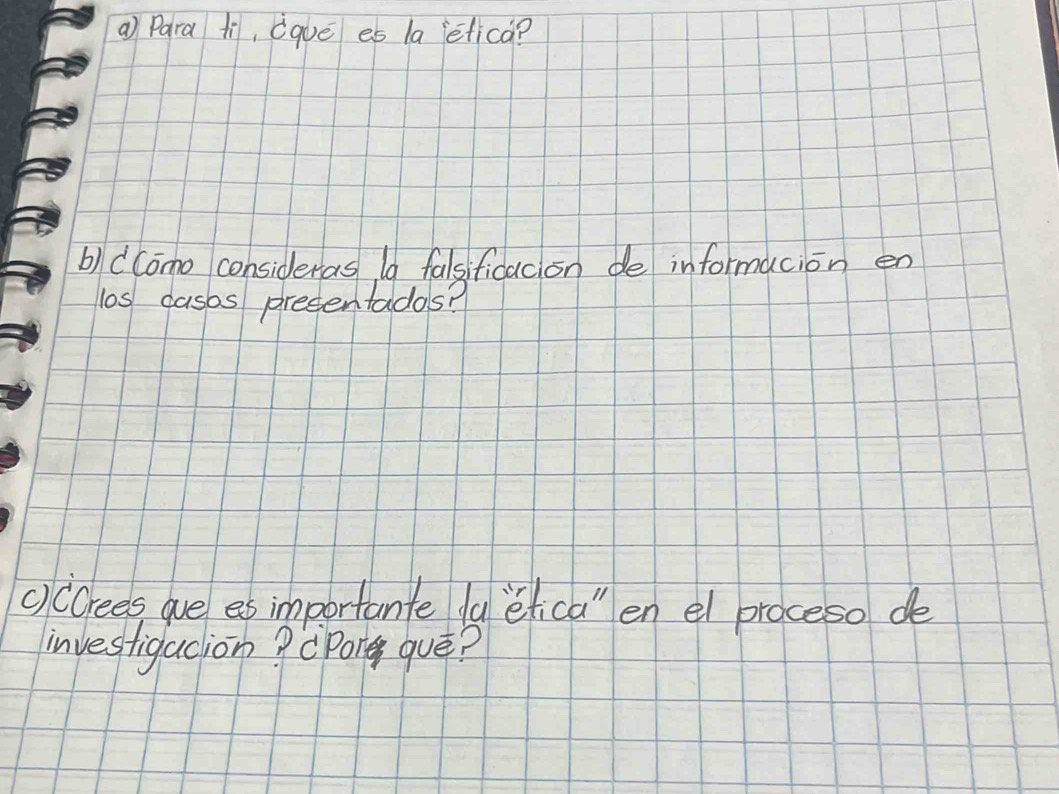 a) Para ti, ¿qué es la ética?
b) ¿Cómo consideras la falsificación de información en
los casos presentados?
c) ¿Crees que es importante la "ética" en el proceso de
investigación? ¿Por qué?